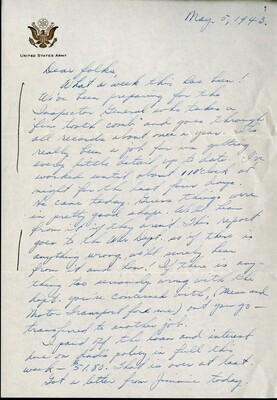 May 5, 1943.
UNITED STATES ARMY
Dear folks,
What a week this has been!
We've been preparing for the
Inspector General who takes a
"fine tooth comb" and goes through
all records about once a year. It's
really been a job for me getting
every little detail up to date. I've
worked until about 11 o'clock at
night for the last four days.
He came today. Guess things were
in pretty good shape. We'll hear
from it if they aren't. This report
goes to the War Dept. so if there is
anything wrong, we'll surely hear
from it and how. If there is any-
thing too seriously wrong with the
dept. you're concerned with, (Mess and
Motor Transport for me) out you go -
transferred to another job.
I paid off the loan and interest
due on Dad's policy in full this
week - 51.83. That is over at last.
Got a letter from Jimmie today.